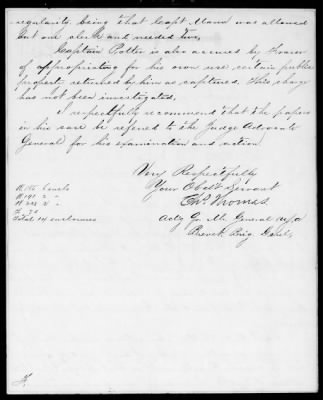 regularity being that Capt Mann was allowed
but one clerk and needed two.
Captain Potter is also accused by
of appropriating for his own use certain public
property returned by him as captured. This charge
has not been investigated.
I respectfully recommend that the papers
in his case be referred to the Judge Advocate
General for his examination and action.
Very Respectfully
Your Obedt Servant
Chs Thomas
Actg Qr Mr General U.S.A
Brevet Brig. Genl.
2 "
2 "
Total 14 enclosures